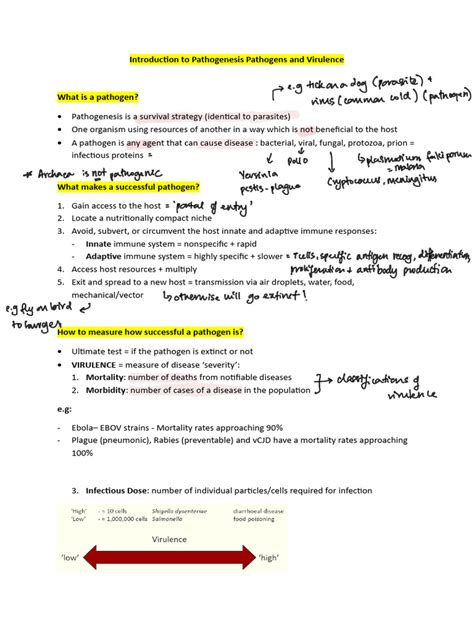 Introduction to Pathogenesis Pathogens and Virulence
→ e.g tick on a dog (parasite) +
virus (common cold) (pathogen)
What is a pathogen?
• Pathogenesis is a survival strategy (identical to parasites)
• One organism using resources of another in a way which is not beneficial to the host
• A pathogen is any agent that can cause disease : bacterial, viral, fungal, protozoa, prion =
infectious proteins
Polio
↳ plasmodium falciporum
= malaria
* Archaea is not pathogenic
Yersinia
pestis - plague
Cryptococcus, meningitus
What makes a successful pathogen?
1. Gain access to the host = 'portal of entry'
2. Locate a nutritionally compact niche
3. Avoid, subvert, or circumvent the host innate and adaptive immune responses:
- Innate immune system = nonspecific + rapid
- Adaptive immune system = highly specific + slower = T cells, specific antigen recog, differentiation,
proliferation + antibody production
4. Access host resources + multiply
5. Exit and spread to a new host = transmission via air droplets, water, food,
mechanical/vector ↳ otherwise will go extinct!
e.g fly on bird
to
How to measure how successful a pathogen is?
• Ultimate test = if the pathogen is extinct or not
• VIRULENCE = measure of disease 'severity':
1. Mortality: number of deaths from notifiable diseases
2. Morbidity: number of cases of a disease in the population
→ classifications of
virulence
e.g:
- Ebola– EBOV strains - Mortality rates approaching 90%
- Plague (pneumonic), Rabies (preventable) and vCJD have a mortality rates approaching
100%
3. Infectious Dose: number of individual particles/cells required for infection
'High' - ≈ 10 cells Shigella dysenteriae diarrhoeal disease
'Low' - ≈ 1,000,000 cells Salmonella food poisoning
Virulence
'low' 'high'